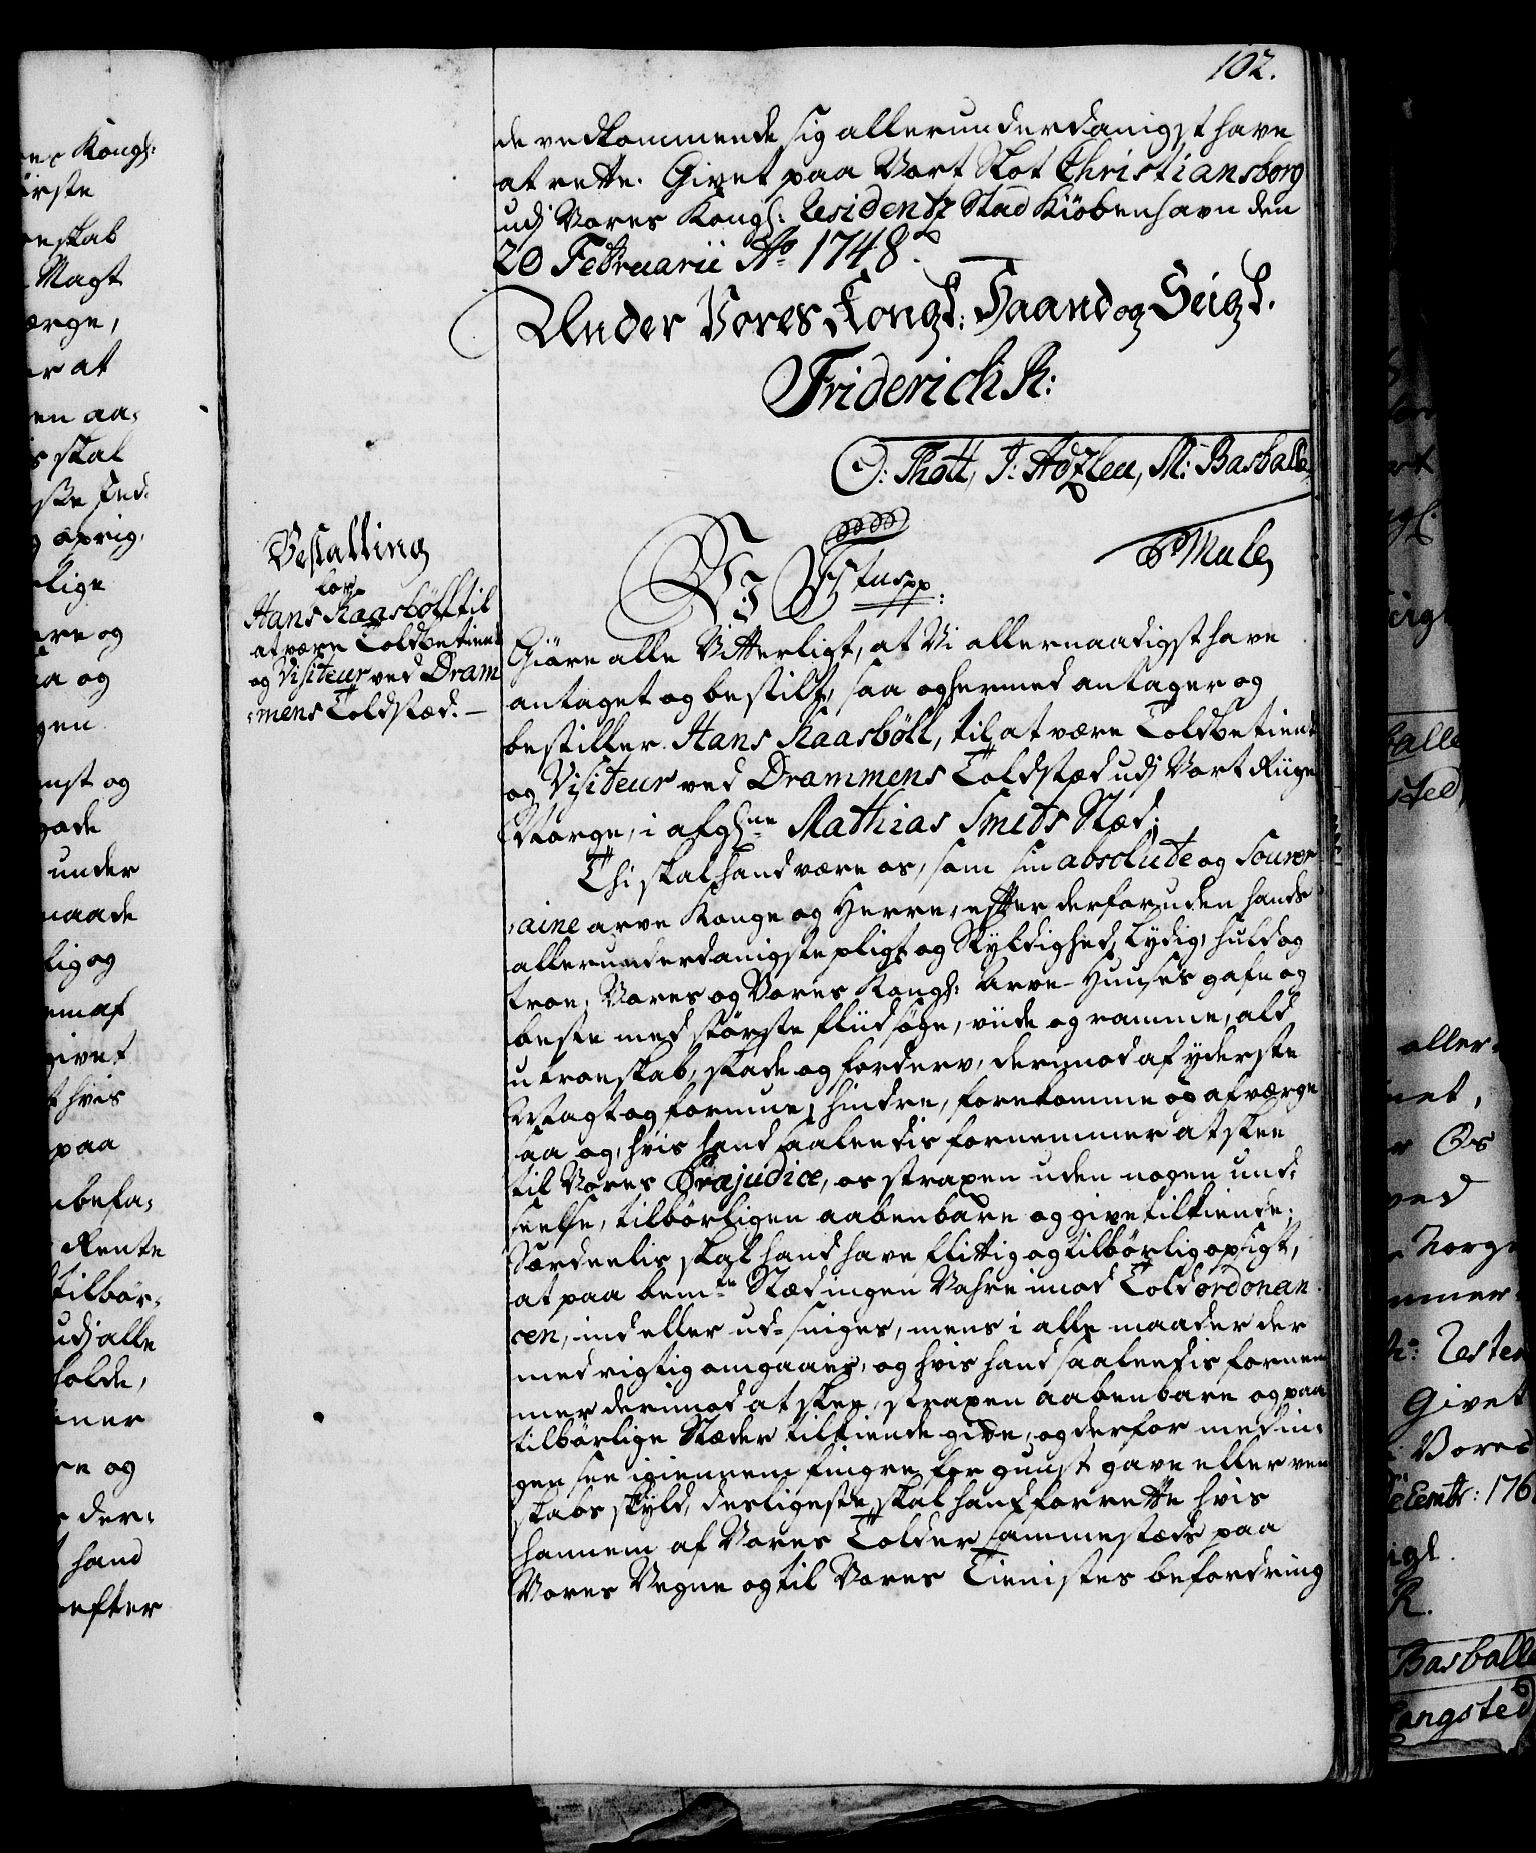 102.
de vedkommende sig allerunderdanigst have
at rette. Givet paa Vort Slot Christiansborg
udj Vores Kongl: Residentz Stad Kiöbenhavn den
20 Februarii Ao 1748.
Under Vores Kongl: Haand og Seigl.
Friderich R:
O: Thott, J: Adzleu, M: Basballe
Mule
Bestalling
for
Hans Raasböll til
at være Toldbetient
og Visiteur ved Dram
mens Toldstæd.
Vj F 5tus pp:
Giöre alle Vitterligt, at Vi allernaadigst have
antaget og bestilt, saa og hermed antager og
bestiller Hans Raasböll, til at være Toldbetient
og Visiteur ved Drammens Toldstæd udj Vort Riige
Norge, i afgl:ne Mathias Smits Stæd;
Thi skal hand være os, som sin absolute og Souver
aine arve Konge og Herre, efter derforuden hands
allerunderdanigste pligt og Skyldighed, lydig, huld og
troe, Vores og Vores Kongl: Arve-Huuses gafn og
beste med störste fliid söge, viide og ramme, ald
utroeskab, skade og forderv, derimod af yderste
Magt og formue, hindre, forekomme og afværge
saa og, hvis hand saaleedis fornemmer at skee
til Vores Præjudice, os straxen uden nogen und:
seelse, tilbörligen aabenbare og give tilkiende;
Særdeelis skal hand have flittig og tilbörlig opsigt,
at paa bem:te Stæd ingen Vahre imod Toldordonan
cen, ind eller ud-sniges, mens i alle maader der
med rigtig omgaaes, og hvis hand saaleedis fornem
mer derimod at skee, straxen aabenbare og paa
tilbörlige Stæder tilkiende give, og derfor med in:
gen see igiennem fingre for gunst gave eller ven
skabs skyld, desligeste skal hand forrette hvis
hannem af Vores Tolder sammestæds paa
Vores Vegne og til Vores Tienistes befordring